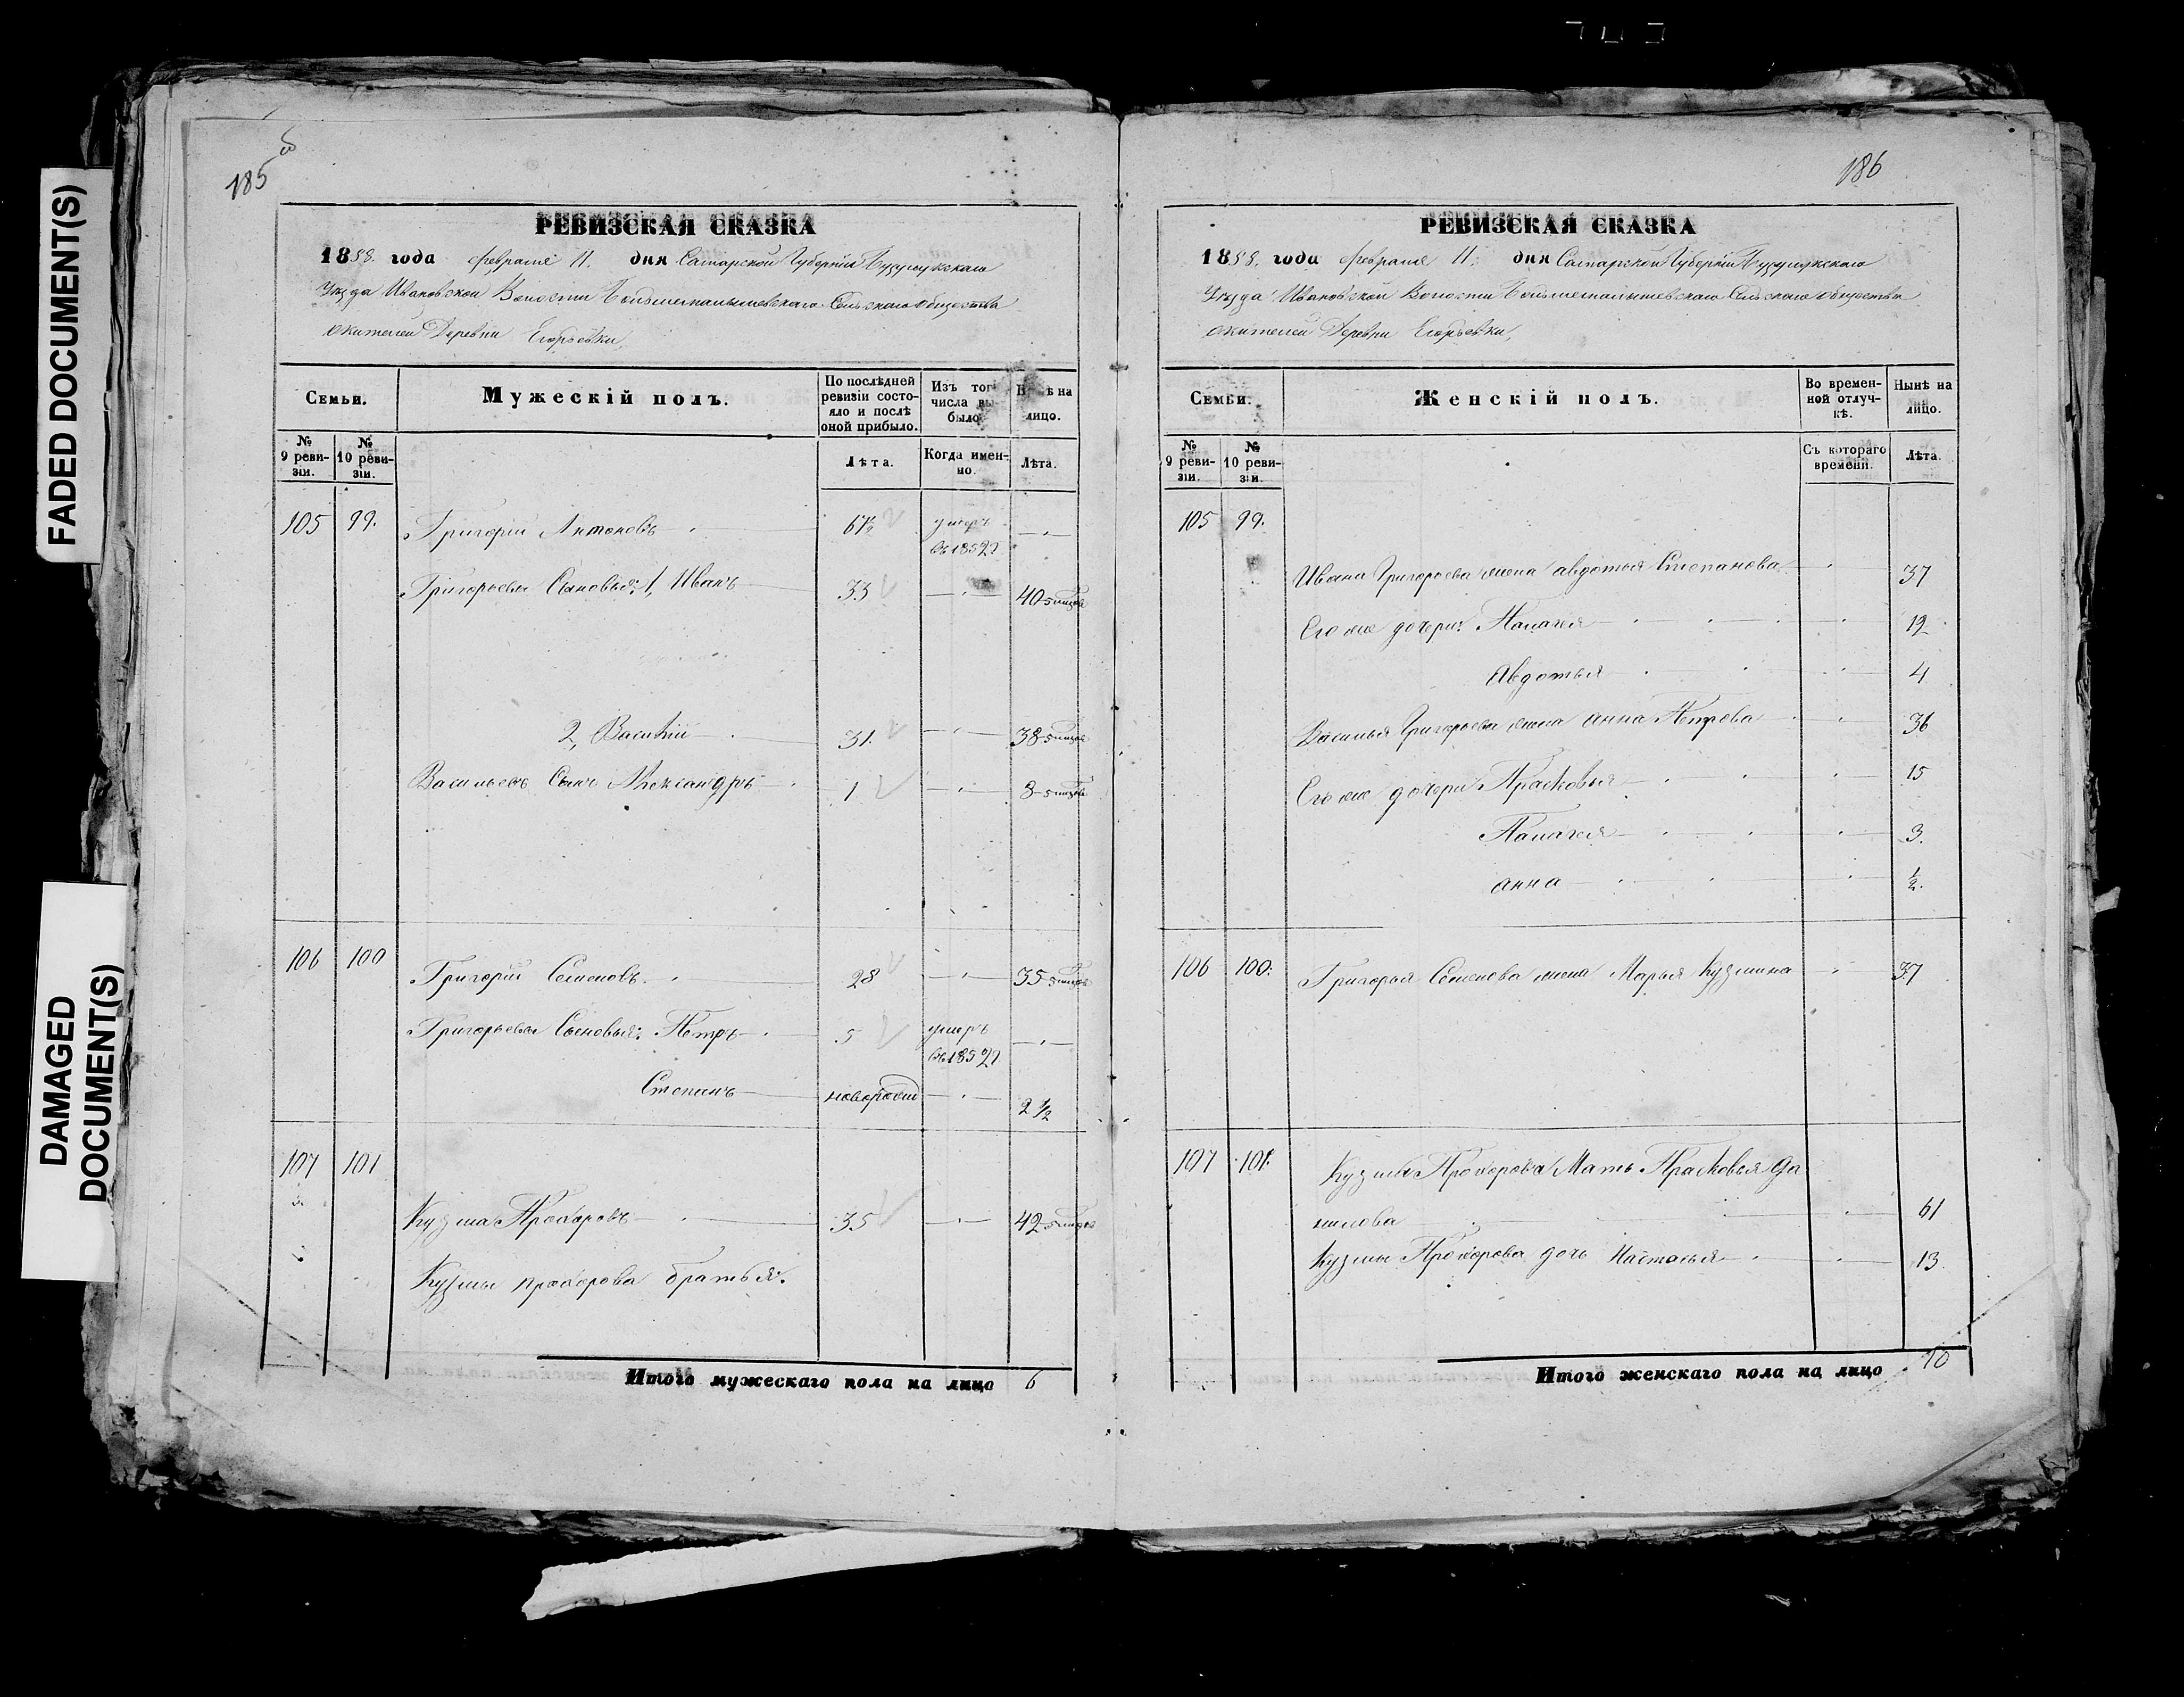 FADED DOCUMENT(S)
DAMAGED
DOCUMENT(S)
185
РЕВИЗСКАЯ СКАЗКА
1858. года февраля 11. дня Самарской Губерніи Бузулукскаго
Уѣзда Ивановской Волости Сельскаго Общества
жителей Деревни Егорьевки,
Семьи.
Мужескій полъ.
По послѣдней ревизіи состояло и послѣ оной прибыло.
Изъ того числа выбыло.
Нынѣ на лицо.
№ 9 ревизіи.
№ 10 ревизіи.
Лѣта.
Когда именно.
Лѣта.
105 99. Григорій Антоновъ 67½ умеръ
въ 1852 г
Григорьевы Сыновья: 1, Иванъ 33 40
2, Василій 31. 38
Васильевъ Сынъ Александръ 1 8
106 100 Григорій Семеновъ. 28 35
Григорьевы Сыновья: Петръ 5 умеръ
въ 1852 г
Степанъ новорожд 2 ½
107 101
Кузма Прохоровъ 35 42
Кузмы прохорова братья:
Итого мужескаго пола на лицо 6
186
РЕВИЗСКАЯ СКАЗКА
1858. года февраля 11. дня Самарской Губерніи Бузулукскаго
Уѣзда Ивановской Волости Сельскаго Общества
жителей Деревни Егорьевки,
Семьи.
Женскій полъ.
Во временной отлучкѣ.
Нынѣ на лицо.
№ 9 ревизіи.
№ 10 ревизіи.
Съ котораго времени.
Лѣта.
105 99.
Ивана Григорьева жена авдотья Степанова 37
Его же дочери: Палагея 12
Авдотья 4
Василья Григорьева жена анна Петрова 36
Его же дочери Прасковья 15
Палагея 3.
анна ½.
106 100. Григорья Семенова жена Марья Кузмина 37
107 101. Кузмы Прохорова Мать Прасковья Да
нилова 61
Кузмы Прохорова дочь Настасья 13
Итого женскаго пола на лицо 10